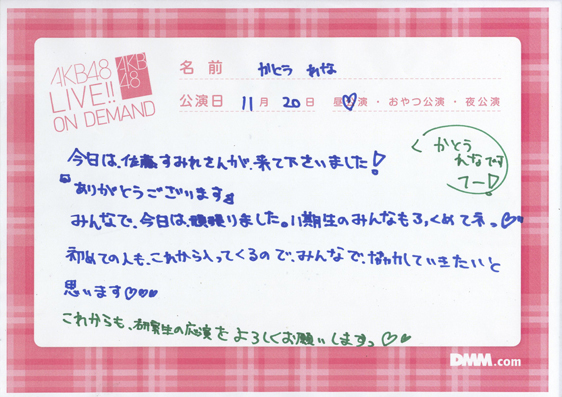 AKB48
LIVE!!
ON DEMAND
AKB
48
名前 かとう れな
公演日 11月 20日 昼♡演・おやつ公演・夜公演
かとう
れなです
てー!
今日は、佐藤すみれさんが、来て下さいました!
ありがとうございます
みんなで、今日は頑張りました。11期生のみんなもろくめてネっ♡
初めての人も、これから入ってくるので、みんなで、なかよくしていきたいと
思います♡♡♡
これからも、研究生の応演をよろしくお願いします。♡♡
DMM.com